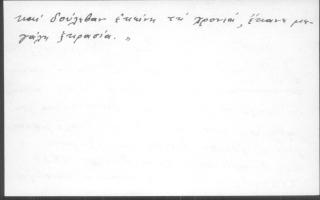 καί δούλεβαν ἐκείνη τή χρονιά, ἔκανε με-
γάλη ξερασία. »